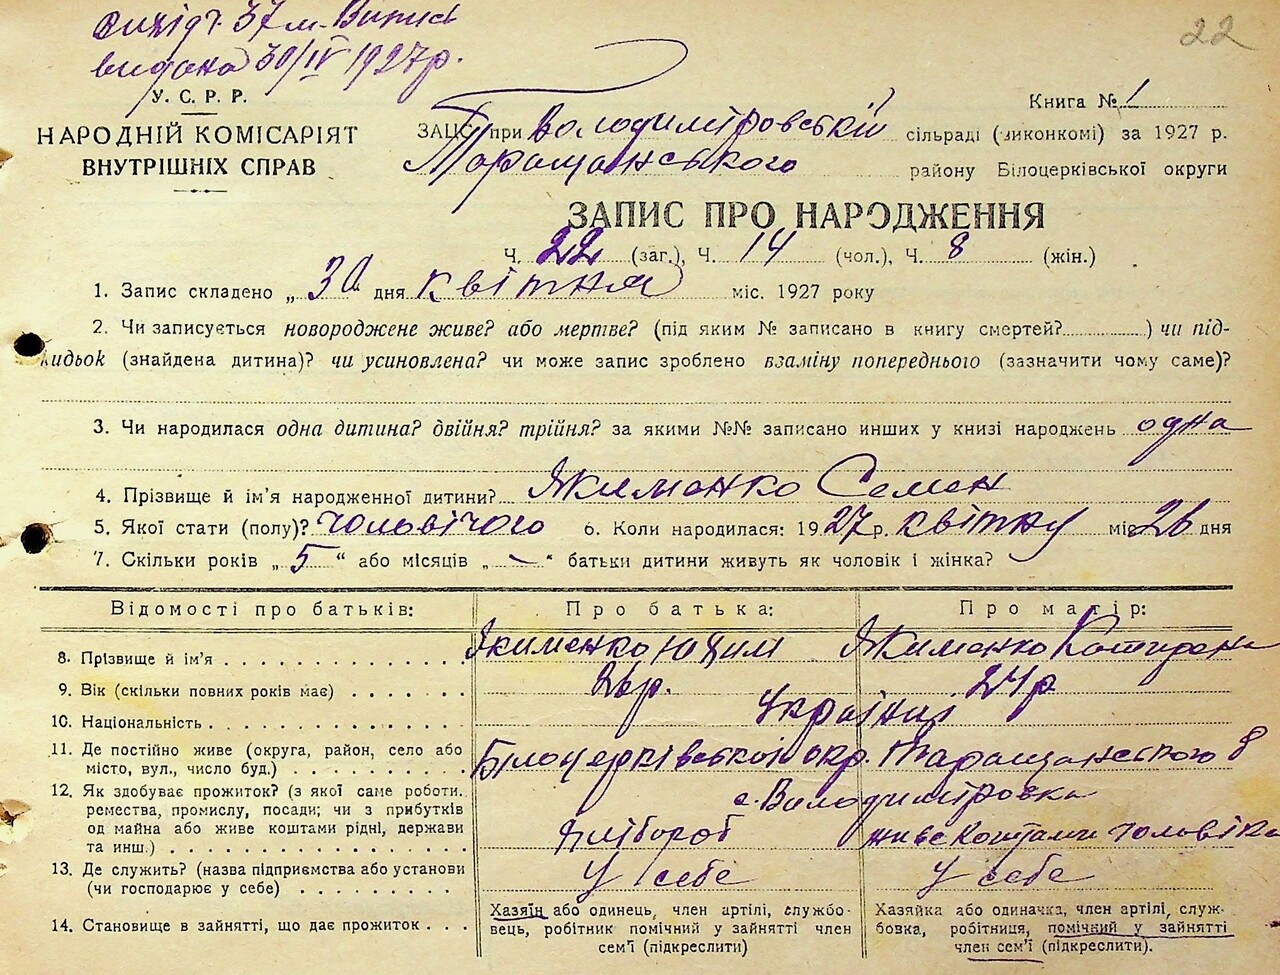 вихідч. 37 м. Випис
22
видано 30/IV 1927р.
У. С. Р. Р.
НАРОДНІЙ КОМІСАРІЯТ
ВНУТРІШНІХ СПРАВ
Книга № 1
ЗАЦС при Володимировській сільраді (виконкомі) за 1927 р.
Таращанського району Білоцерківської округи
ЗАПИС ПРО НАРОДЖЕННЯ
Ч. 22 (заг.), Ч. 14 (чол.), Ч. 8 (жін.)
1. Запис складено „ 30 дня квітня міс. 1927 року
2. Чи записується новороджене живе? або мертве? (під яким № записано в книгу смертей?) чи під-
кидьок (знайдена дитина)? чи усиновлена? чи може запис зроблено взаміну попереднього (зазначити чому саме)?
3. Чи народилася одна дитина? двійня? трійня? за якими №№ записано инших у книзі народжень одна
4. Прізвище й ім'я народженної дитини? Якименко Семен
5. Якої стати (полу)? чоловічого 6. Коли народилася: 1927 р. квітну міс 26 дня
7. Скільки років „ 5 “ або місяців „ — “ батьки дитини живуть як чоловік і жінка?
Відомості про батьків: Про батька: Про матір:
8. Прізвище й ім'я Якименко Юхим Якименко Катирена
9. Вік (скільки повних років має) 26р. 24р
10. Національність Україн
11. Де постійно живе (округа, район, село або Білоцерківської окр. Таращанського
місто, вул., число буд.)
12. Як здобуває прожиток? (з якої саме роботи. с. Володимировка
ремества, промислу, посади; чи з прибутків
од майна або живе коштами рідні, держави Хлібороб живе коштами чоловіка
та инш.)
13. Де служить? (назва підприємства або установи У себе У себе
(чи господарює у себе)
Хазяїн або одинець, член артілі, службо- Хазяйка або одиначка, член артілі, служ-
14. Становище в зайнятті, що дає прожиток вець, робітник помічний у зайнятті член бовка, робітниця, помічний у зайнятті
сем'ї (підкреслити) член сем'ї (підкреслити).